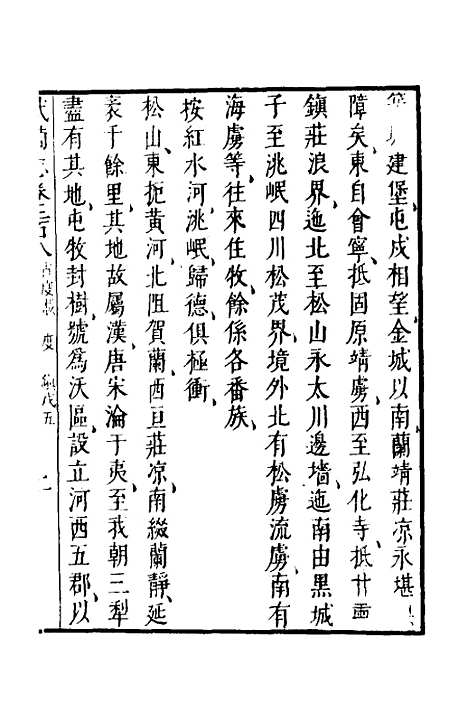 建堡屯戍相望金城以南蘭靖莊凉永堪
障矣東自會寧抵固原靖虜西至弘化寺抵甘肅
鎮莊浪界迤北至松山永太川邊墻迤南由黑城
子至洮岷四川松茂界境外北有松虜流虜南有
海虜等往來住牧餘係各番族
按紅水河洮岷歸德俱極衝
松山東扼黃河北阻賀蘭西亘莊凉南綴蘭靜延
袤千餘里其地故屬漢唐宋淪于夷至我朝三犁
盡有其地屯牧封樹號爲沃區設立河西五郡以
武備志卷二百八 占度載 度 鎮戍五